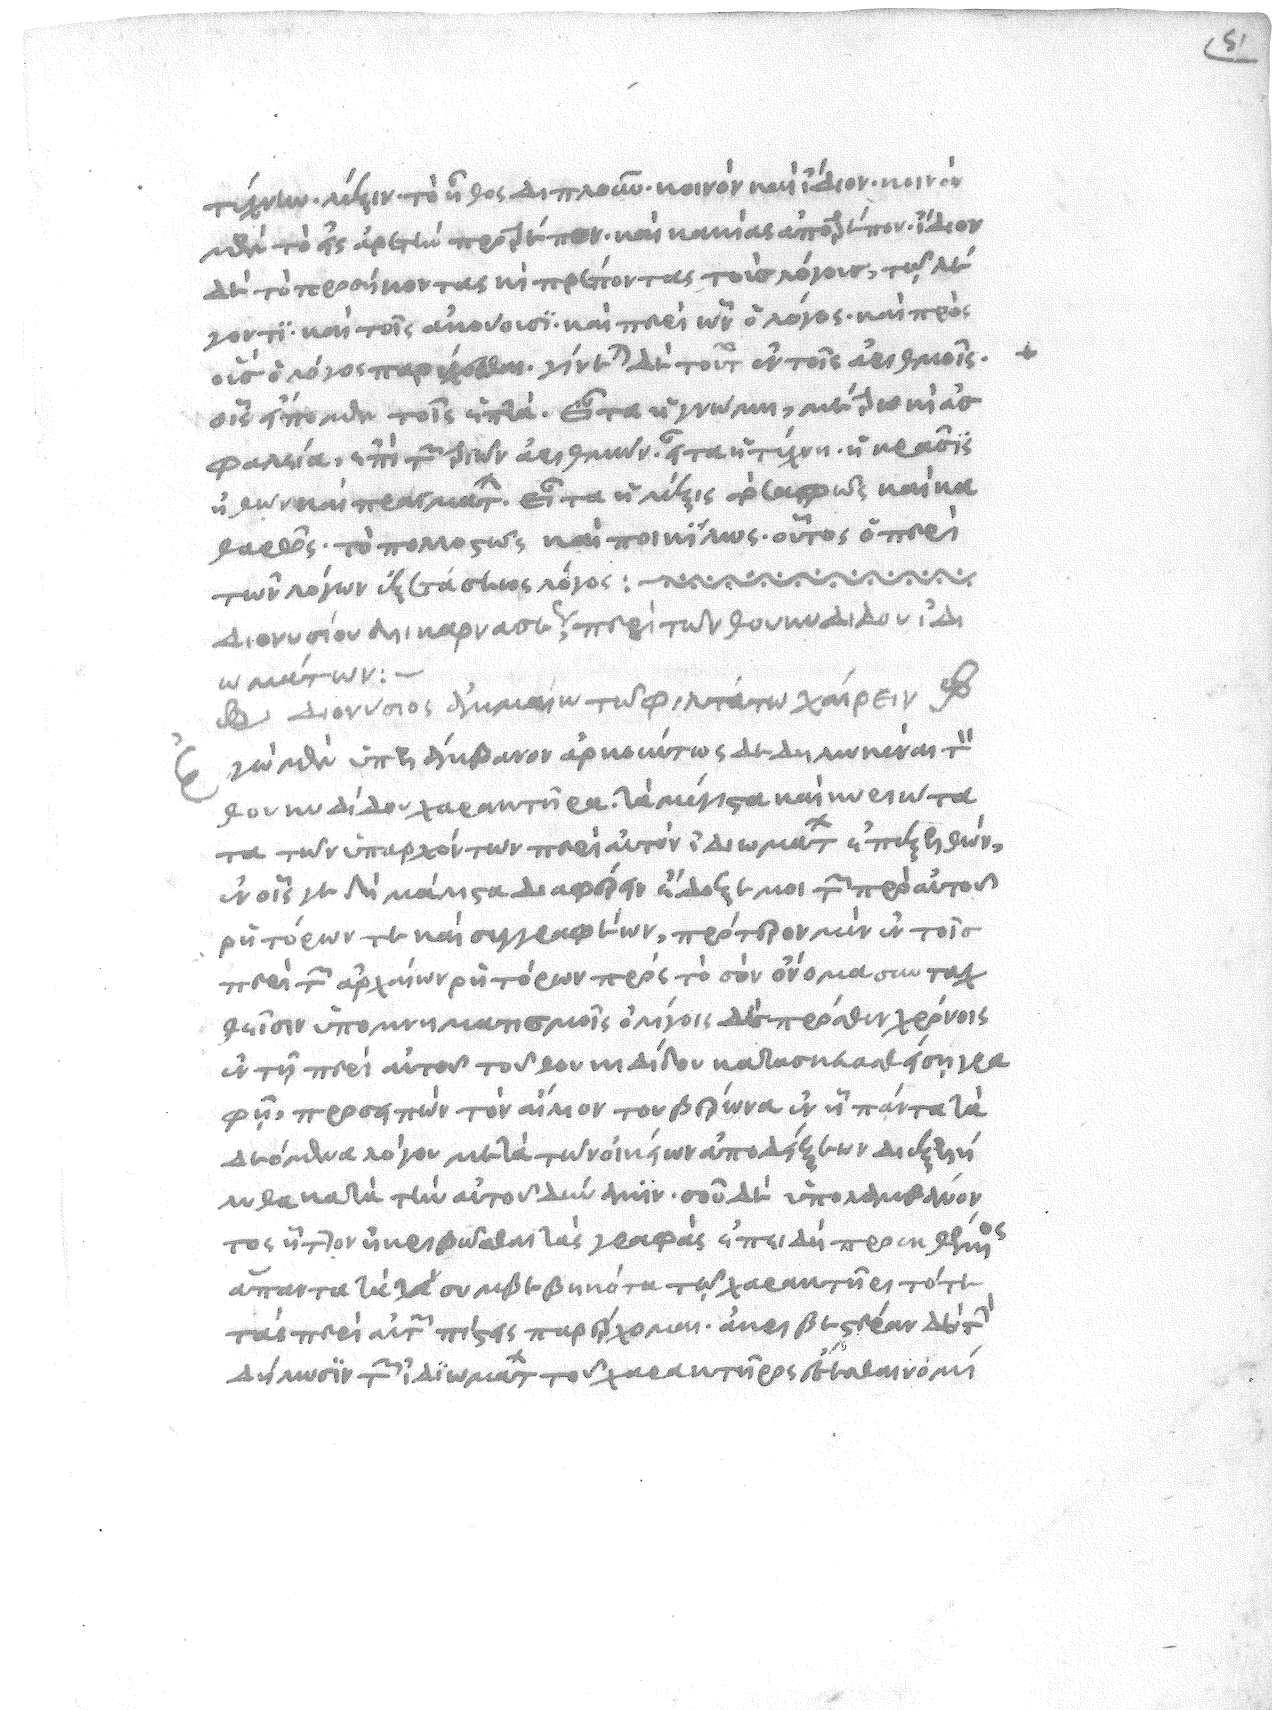 51
τέχνην. λέξιν. τὸ ἦθος διπλοῦν. κοινὸν καὶ ἴδιον. κοινὸν
μὲν τὸ εἰς ἀρετὴν προτρέπον. καὶ κακίας ἀποτρέπον. ἴδιον
δὲ τὸ προσήκοντας κὶ πρέποντας τοὺς λόγους, τῷ λέ
γοντϊ. καὶ τοῖς ἀκούουσϊ. καὶ περὶ ὧν ὁ λόγος. καὶ πρὸς
οὓς ὁ λόγος παρέχεσθαι. γίνεται δὲ τοῦτο ἐν τοῖς ἀριθμοῖς.
οἷς εἴπομεν τοῖς ἑπτά. εἶτα ἡ γνώμη,
φαλεία, ἐπὶ τῶν ἀριθμῶν. εἶτα ἡ τέχνη. ἡ κρᾶσϊς
ἠθῶν καὶ πραγμάτων. εἶτα ἡ λέξις σαφῶς καὶ κα
θαρῶς. τὸ πολλοστῶς καὶ ποικΐλως. οὗτος ὁ περὶ
τῶν λόγων ἐξετάσεως λόγος:
διονυσίου ἁλικαρνασέως περὶ τῶν θουκυδίδου ἰδι
ωμάτων:
διονύσιος ἀμμαίω τῶ φιλτάτω χαίρειν
Ἐγὼ μὲν ὑπελάμβανον ἀρκούντως δεδηλωκέναι τὸν
θουκυδίδου χαρακτῆρα. τὰ μέγιστα καὶ κυριώτα
τα τῶν ὑπαρχόντων περὶ αὐτὸν ἰδιωμάτων ἐπεξελθών,
ἐν οἷς γε δὴ μάλιστα διαφέρειν ἔδοξε μοι τῶν πρὸ αὐτοῦ
ῥητόρων τε καὶ συγγραφέων, πρότερον μὲν ἐν τοῖς
περὶ τῶν ἀρχαίων ῥητόρων πρὸς τὸ σὸν ὄνομα συνταχ
θεῖσιν ὑπομνηματισμοῖς ὀλίγοις δὲ πρόσθεν χρόνοις
ἐν τῇ περὶ αὐτοῦ τοῦ θουκιδίδου κατασκευασθείσῃ γρα
φῇ, προσειπὼν τὸν αἴλιον τουβέρωνα ἐν ᾗ πάντα τὰ
δεόμενα λόγου μετὰ τῶν οἰκείων ἀποδείξεων διεξελή
λυθα κατὰ τὴν αὐτοῦ δύναμϊν. σοῦ δὲ ὑπολαμβάνον
τος ἧττον ἠκριβῶσθαι τὰς γραφὰς ἐπειδὴ προεκθέμενος
ἅπαντα τὰ συμβεβηκότα τῷ χαρακτῆρι τότε
τὰς περὶ αὐτῶν πίστεις παρέχομαι. ἀκριβεστέραν δὲ τὴν
δήλωσϊν τῶν ἰδϊωμάτων τοῦ χαρακτῆρος ἔσεσθαι νομί